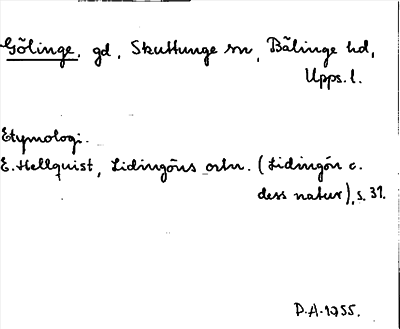 Gölinge. gd, Skuttunge sn, Bälinge hd,
Upps.l.
Etymologi.
E. Hellquist, Lidingöns ortn. (Lidingön o.
dess natur), s. 31.
D.A. 1955.